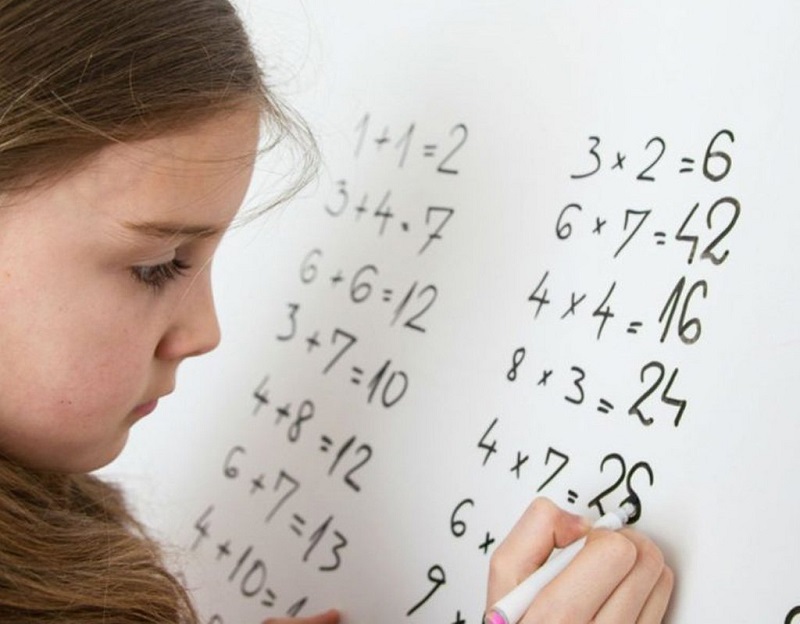 1+1=2
3+4=7
6+6=12
3+7=10
4+8=12
6+7=13
4+10=
3×2=6
6×7=42
4×4=16
8×3=24
4×7=28
6×
9